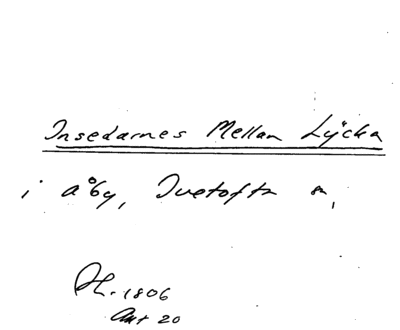 Insedarnes Mellan Lÿcka
i åby, Ivetofta sn,
Ph. 1806
Aut 20